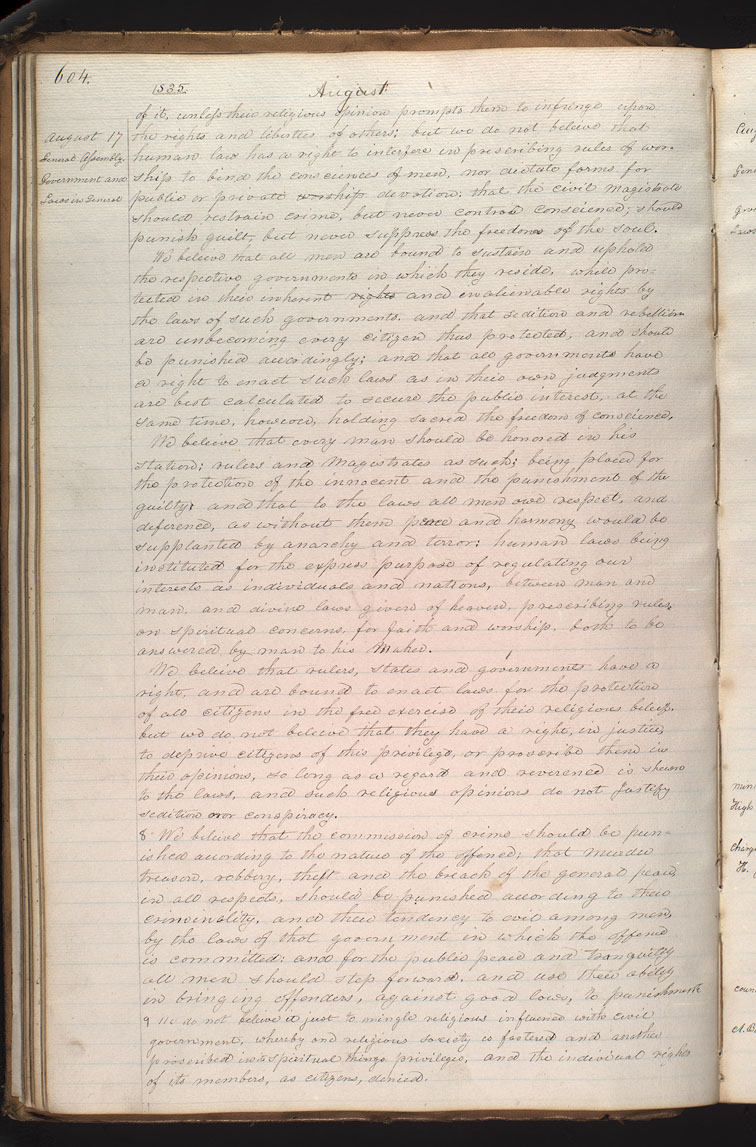 604.
1835.
August
August 17
General Assembly.
Government and
Laws in General
of it, unless their religious opinion prompts them to infringe upon
the rights and liberties of others; but we do not believe that
human law has a right to interfere in prescribing rules of wor-
ship to bind the consciences of men, nor dictate forms for
public or private worship devotion; that the civil magistrate
should restrain crime, but never control conscience; should
punish guilt, but never suppress the freedom of the soul.
We believe that all men are bound to sustain and uphold
the respective governments in which they reside, while pro-
tected in their inherent rights and inalienable rights by
the laws of such governments, and that sedition and rebellion
are unbecoming every citizen thus protected, and should
be punished accordingly; and that all governments have
a right to enact such laws as in their own judgments
are best calculated to secure the public interest, at the
same time, however, holding sacred the freedom of conscience.
We believe that every man should be honored in his
station; rulers and Magistrates as such; being placed for
the protection of the innocent and the punishment of the
guilty; and that to the laws all men owe respect, and
deference, as without them peace and harmony would be
supplanted by anarchy and terror; human laws being
instituted for the express purpose of regulating our
interests as individuals and nations, between man and
man, and divine laws given of heaven, prescribing rules,
on spiritual concerns, for faith and worship, both to be
answered by man to his Maker.
We believe that rulers, states and governments have a
right, and are bound to enact laws for the protection
of all citizens in the free exercise of their religious belief,
but we do not believe that they have a right, in justice,
to deprive citizens of this privilege, or proscribe them in
their opinions, so long as a regard and reverence is shewn
to the laws, and such religious opinions do not justify
sedition or conspiracy.
8 We believe that the commission of crime should be pun-
ished according to the nature of the offence; that murder
treason, robbery, theft and the breach of the general peace,
in all respects, should be punished according to their
criminality, and their tendency to evil among men,
by the laws of that government in which the offence
is committed: and for the public peace and tranquility
all men should step forward, and use their ability
in bringing offenders, against good laws, to punishment
9 We do not believe it just to mingle religious influence with civil
government, whereby one religious society is fostered and another
proscribed in its spiritual things privileges, and the individual rights
of its members, as citizens, denied.